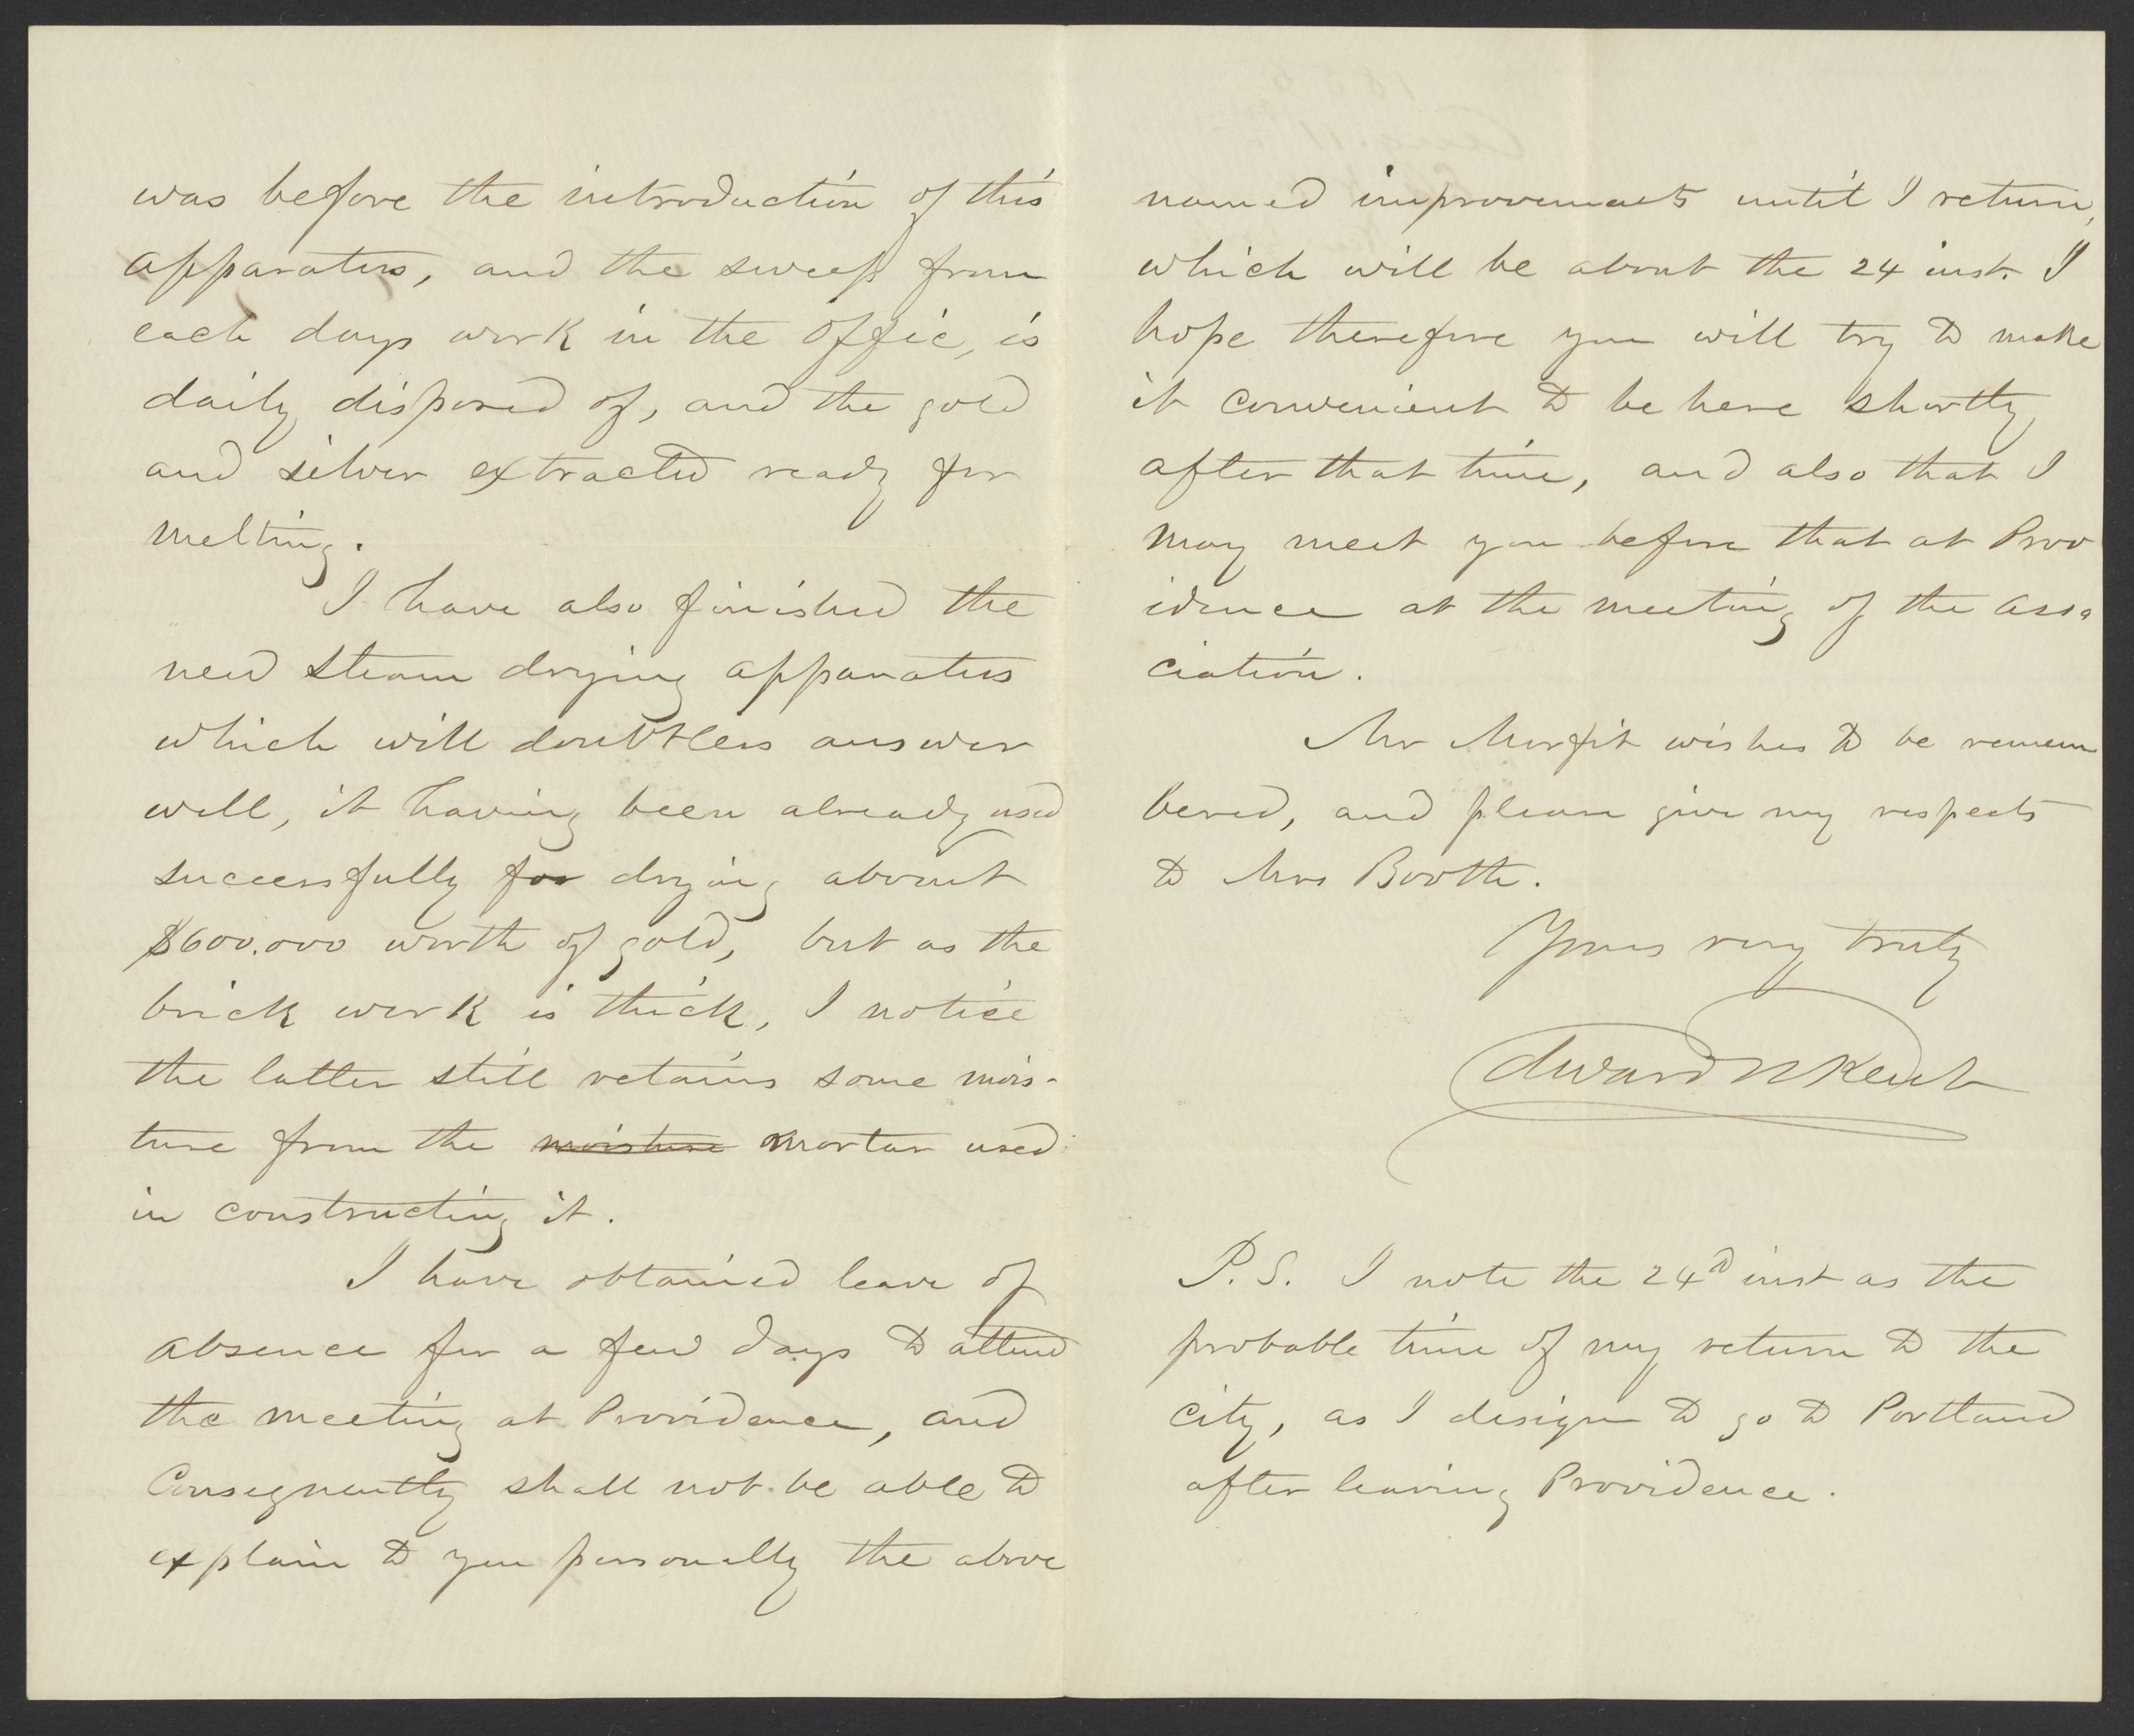 was before the introduction of this
apparatus, and the sweep from
each days work in the offic, is
daily disposed of, and the gold
and silver extracted ready for
melting.
I have also finished the
new steam drying apparatus
which will doubtless answer
well, it having been already used
successfully for drying about
$600.000 worth of gold, but as the
brick work is thick, I notice
the latter still retains some mois-
ture from the moisture mortar used
in constructing it.
I have obtained leave of
absence for a few days to attend
the meeting at Providence, and
Consequently shall not be able to
explain to you personally the above
named improvements until I return,
which will be about the 24 inst. I
hope therefore you will try to make
it convenient to be here shortly
after that time, and also that I
may meet you before that at Prov
idence at the meeting of the asso
ciation.
Mr Morfit wishes to be remem
bered, and please give my respects
to Mrs Booth.
Yours very truly
Edward N Kent
P.S. I note the 24th inst as the
probable time of my return to the
city, as I design to go to Portland
after leaving Providence.